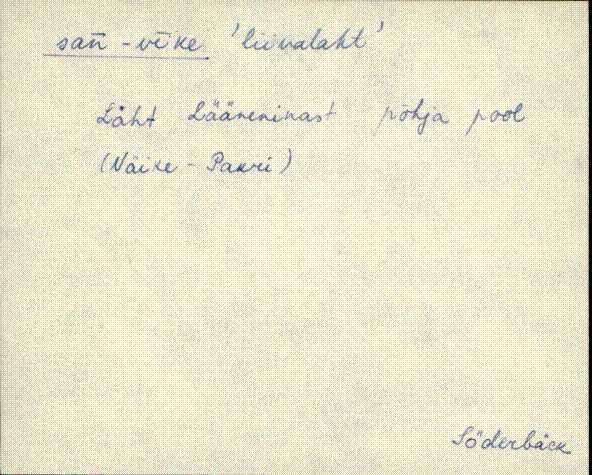 sañ-vīke 'liivalaht'
Laht Lääneninast põhja pool
(Väike-Pakri)
Söderbäck